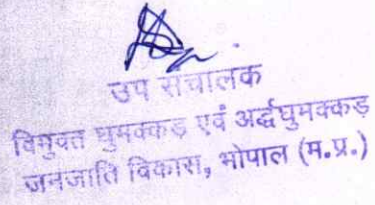 उप संचालक
विमुक्त घुमक्कड़ एवं अर्द्धघुमक्कड़
जनजाति विकास, भोपाल (म.प्र.)